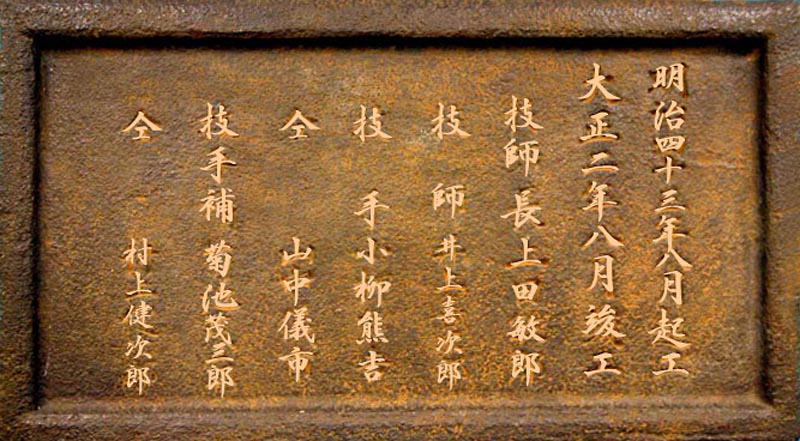 明治四十三年八月起工
大正二年八月竣工
技師長上田敏郎
技師 井上喜次郎
技手小柳熊吉
仝 山中儀市
技手補菊池茂三郎
仝 村上健次郎